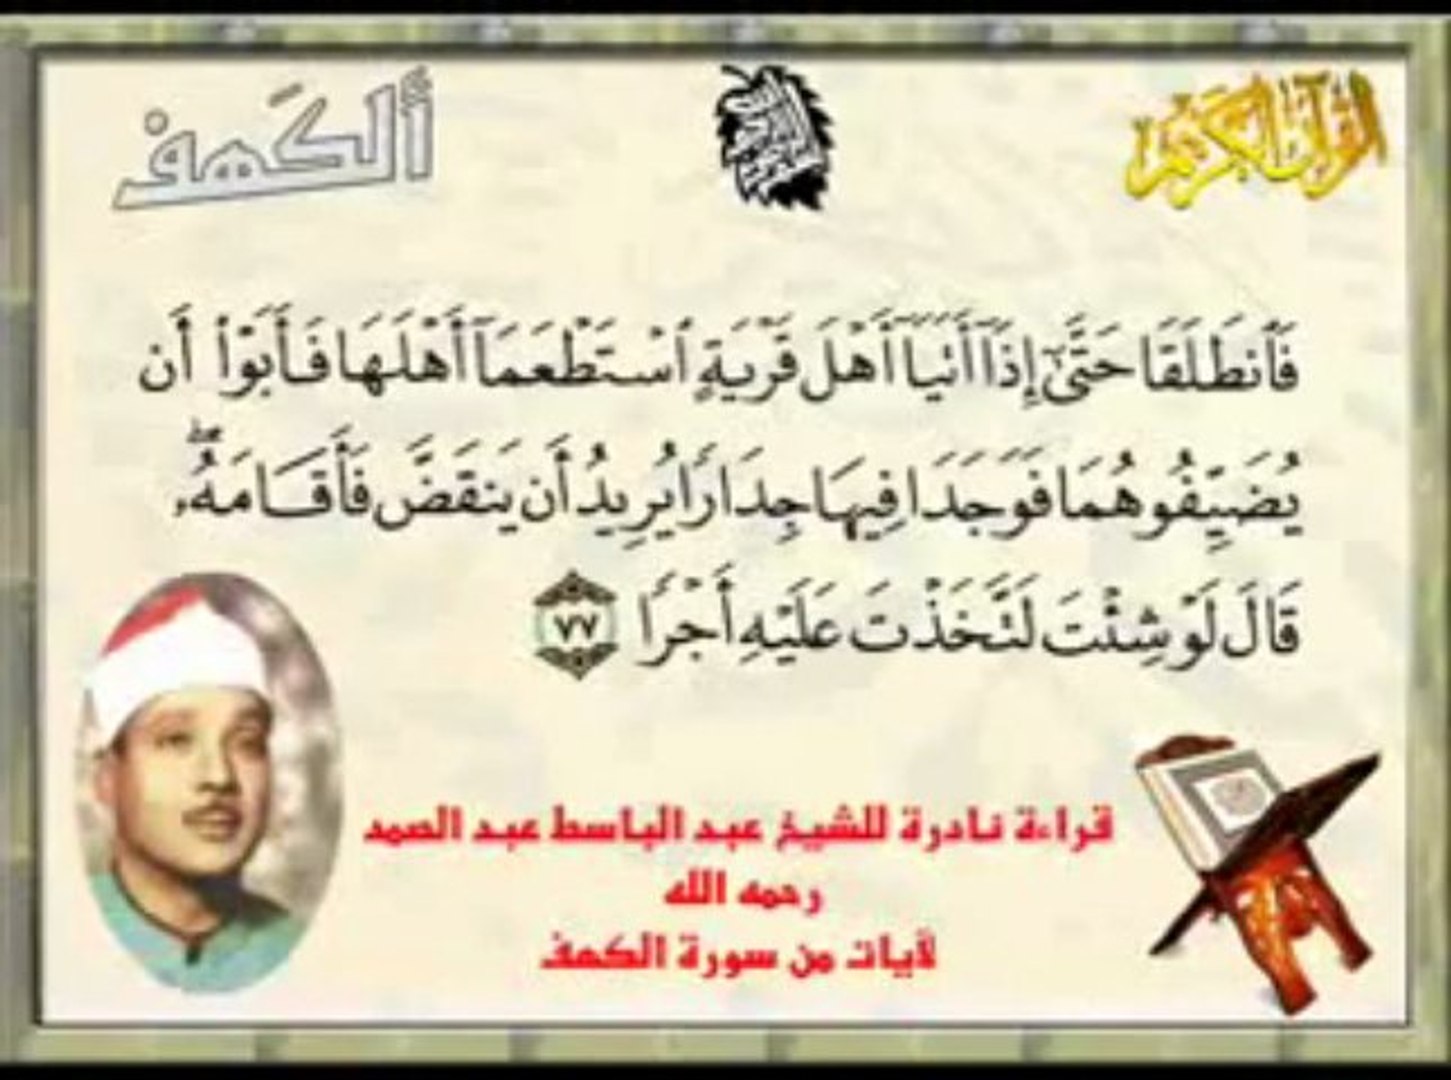 القرآن الكريم
ألكَهف
فَٱنطَلَقَا حَتَّىٰٓ إِذَآ أَتَيَآ أَهْلَ قَرْيَةٍ ٱسْتَطْعَمَآ أَهْلَهَا فَأَبَوْا۟ أَن
يُضَيِّفُوهُمَا فَوَجَدَا فِيهَا جِدَارًا يُرِيدُ أَن يَنقَضَّ فَأَقَامَهُۥۖ
قَالَ لَوْ شِئْتَ لَتَّخَذْتَ عَلَيْهِ أَجْرًا ٧٧
قراءة نادرة للشيخ عبد الباسط عبد الصمد
رحمه الله
لآيات من سورة الكهف